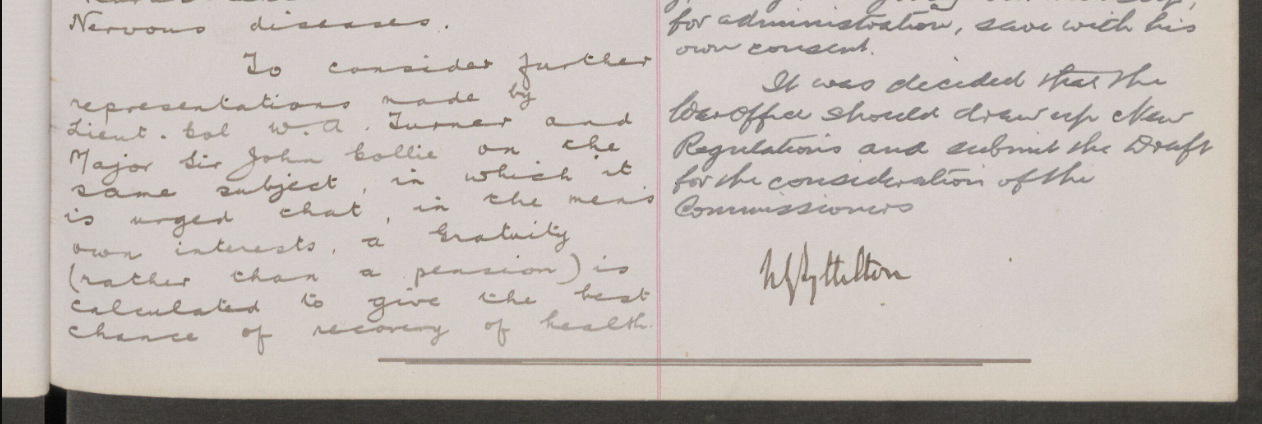 Nervous diseases.
To consider further
representations made by
Lieut. Col W. A. Turner and
Major Sir John Collie on the
same subject, in which it
is urged that, in the men's
own interests, a Gratuity
(rather than a pension) is
calculated to give the best
chance of recovery of health.
for administration, save with his
own consent.
It was decided that the
War Office should draw up New
Regulations and submit the Draft
for the consideration of the
Commissioners
Lyttelton